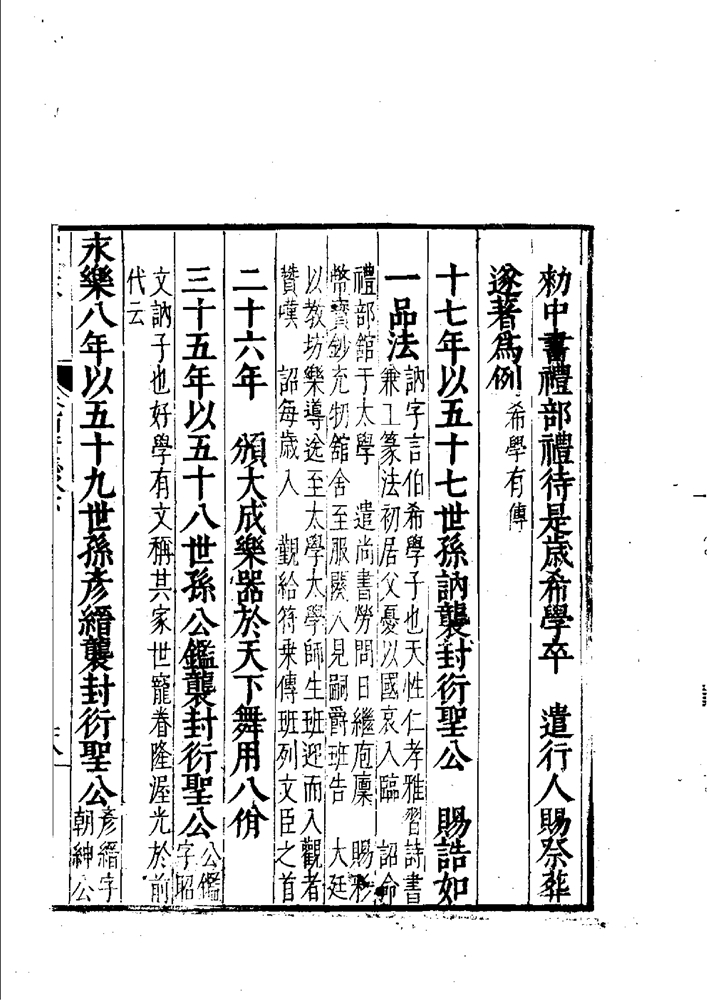 勑中書禮部禮待是歲希學卒　遣行人賜祭葬
遂著爲例希學有傳
十七年以五十七世孫訥襲封衍聖公　賜誥如
一品法訥字言伯希學子也天性仁孝雅習詩書
兼工篆法初居父憂以國哀入臨　詔命
禮部館于太學　遣尚書勞問日繼庖廩　賜
幣寳鈔充牣館舍至服闋入見嗣爵班告　大廷
以教坊樂導送至太學太學師生班迎而入觀者
贊嘆　詔每歲入　觀給符乗傳班列文臣之首
二十六年　頒大成樂器於天下舞用八佾
三十五年以五十八世孫公鑑襲封衍聖公公鑑
字昭
文訥子也好學有文稱其家世寵眷隆渥光於前
代云
永樂八年以五十九世孫彥縉襲封衍聖公彥縉字
朝紳公